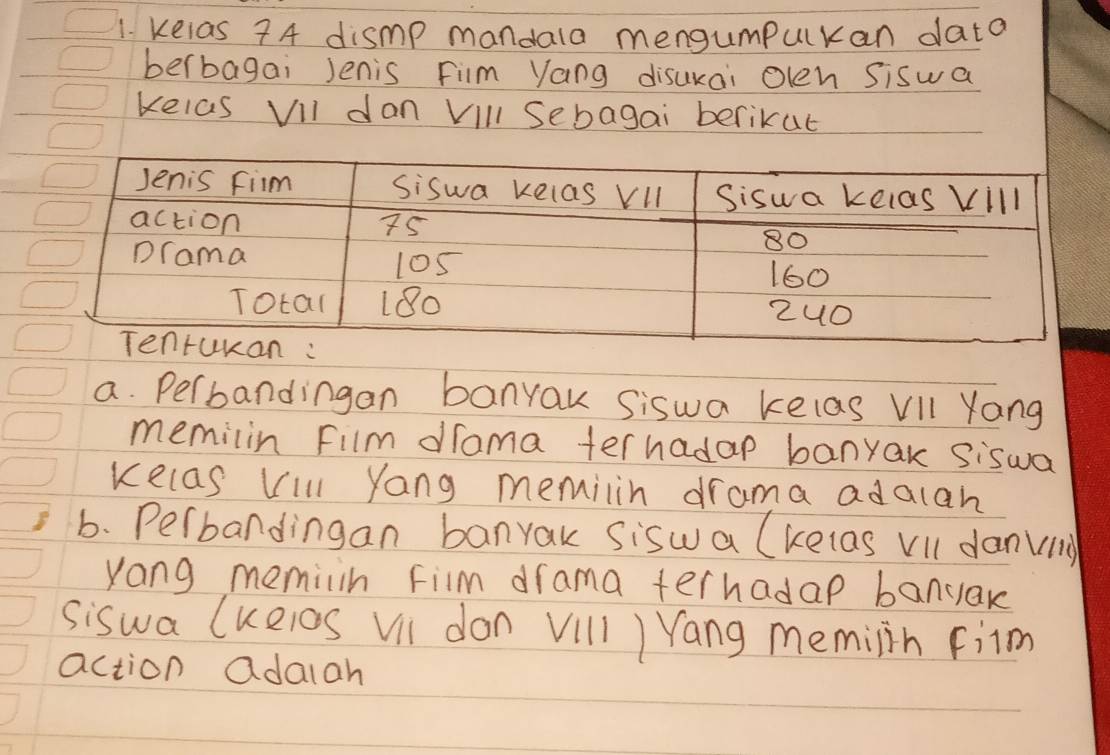 1. Kelas 7A dismp mandala mengumpulkan data
berbagai Jenis Film Yang disukai Oleh Siswa
Kelas VII dan VIII Sebagai berikut
Jenis Film Siswa Kelas VII Siswa Kelas VIII
action 75 80
Drama 105 160
Total 180 240
Tentukan :
a. Perbandingan banyak Siswa Kelas VII Yang
memilih Film drama terhadap banyak Siswa
Kelas VIII Yang memilih drama adalah
b. Perbandingan banyak Siswa (Kelas VII dan VIII)
yang memilih Film drama terhadap banyak
Siswa (Kelas VII dan VIII) Yang memilih Film
action adalah